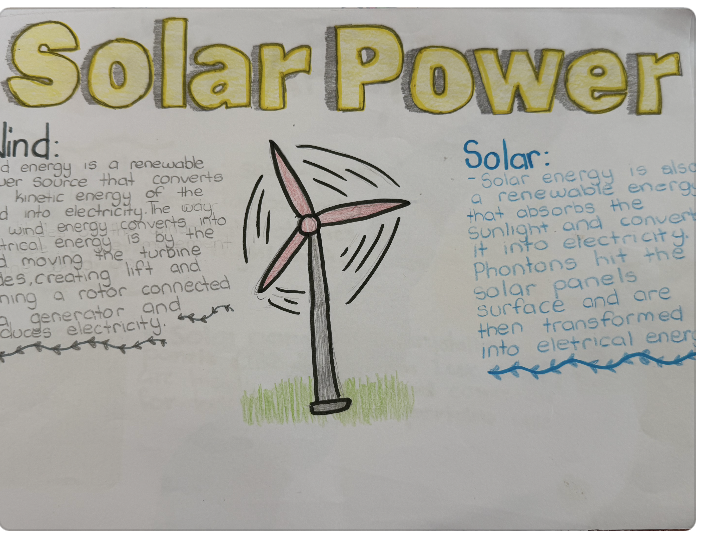 Solar Power
Wind:
d energy is a renewable
wer source that converts
kinetic energy of the
d into electricity. The way
wind energy converts into
trical energy is by the
d moving the turbine
des, creating lift and
ning a rotor connected
a generator and
duces electricity.
Solar:
- Solar energy is also
a renewable energy
that absorbs the
sunlight and convert
it into electricity.
Phontons hit the
solar panels
surface and are
then transformed
into eletrical energ